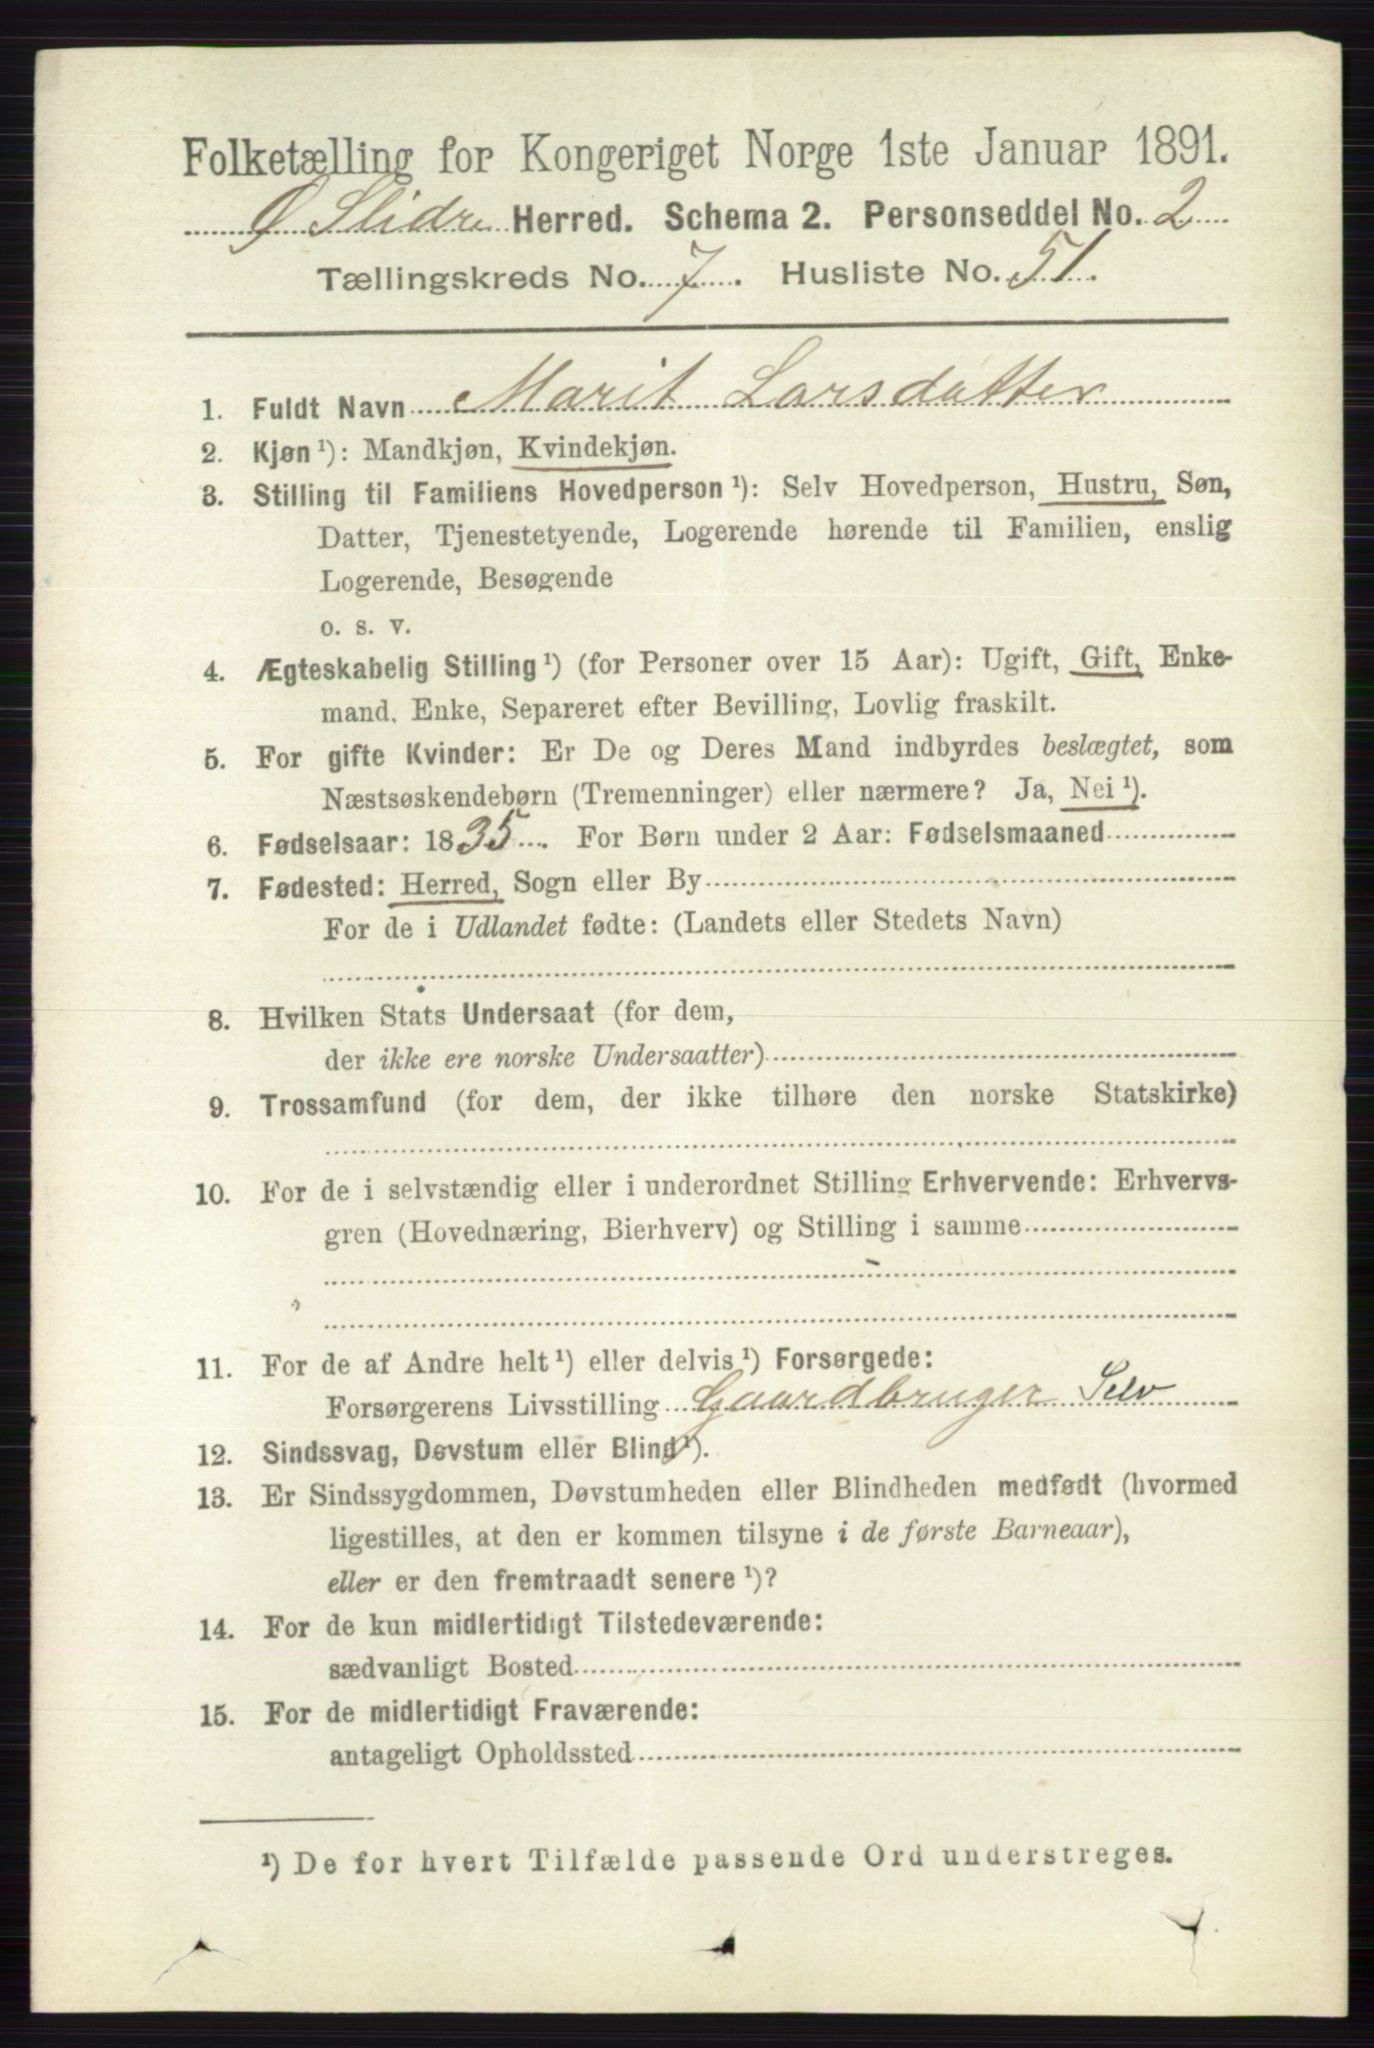 Folketælling for Kongeriget Norge 1ste Januar 1891.
Ø Slidre Herred. Schema 2. Personseddel No. 2
Tællingskreds No. 7. Husliste No. 51.
1. Fuldt Navn Marit Larsdatter
2. Kjøn ¹): Mandkjøn, Kvindekjøn.
3. Stilling til Familiens Hovedperson ¹): Selv Hovedperson, Hustru, Søn,
Datter, Tjenestetyende, Logerende hørende til Familien, enslig
Logerende, Besøgende
o. s. v.
4. Ægteskabelig Stilling ¹) (for Personer over 15 Aar): Ugift, Gift, Enke-
mand, Enke, Separeret efter Bevilling, Lovlig fraskilt.
5. For gifte Kvinder: Er De og Deres Mand indbyrdes beslægtet, som
Næstsøskendebørn (Tremenninger) eller nærmere? Ja, Nei ¹).
6. Fødselsaar: 1835. For Børn under 2 Aar: Fødselsmaaned
7. Fødested: Herred, Sogn eller By
For de i Udlandet fødte: (Landets eller Stedets Navn)
8. Hvilken Stats Undersaat (for dem,
der ikke ere norske Undersaatter)
9. Trossamfund (for dem, der ikke tilhøre den norske Statskirke)
10. For de i selvstændig eller i underordnet Stilling Erhvervende: Erhvervs-
gren (Hovednæring, Bierhverv) og Stilling i samme
11. For de af Andre helt ¹) eller delvis ¹) Forsørgede:
Forsørgerens Livsstilling Gaardbruger Selv
12. Sindssvag, Døvstum eller Blind ¹).
13. Er Sindssygdommen, Døvstumheden eller Blindheden medfødt (hvormed
ligestilles, at den er kommen tilsyne i de første Barneaar),
eller er den fremtraadt senere ¹)?
14. For de kun midlertidigt Tilstedeværende:
sædvanligt Bosted
15. For de midlertidigt Fraværende:
antageligt Opholdssted
¹) De for hvert Tilfælde passende Ord understreges.